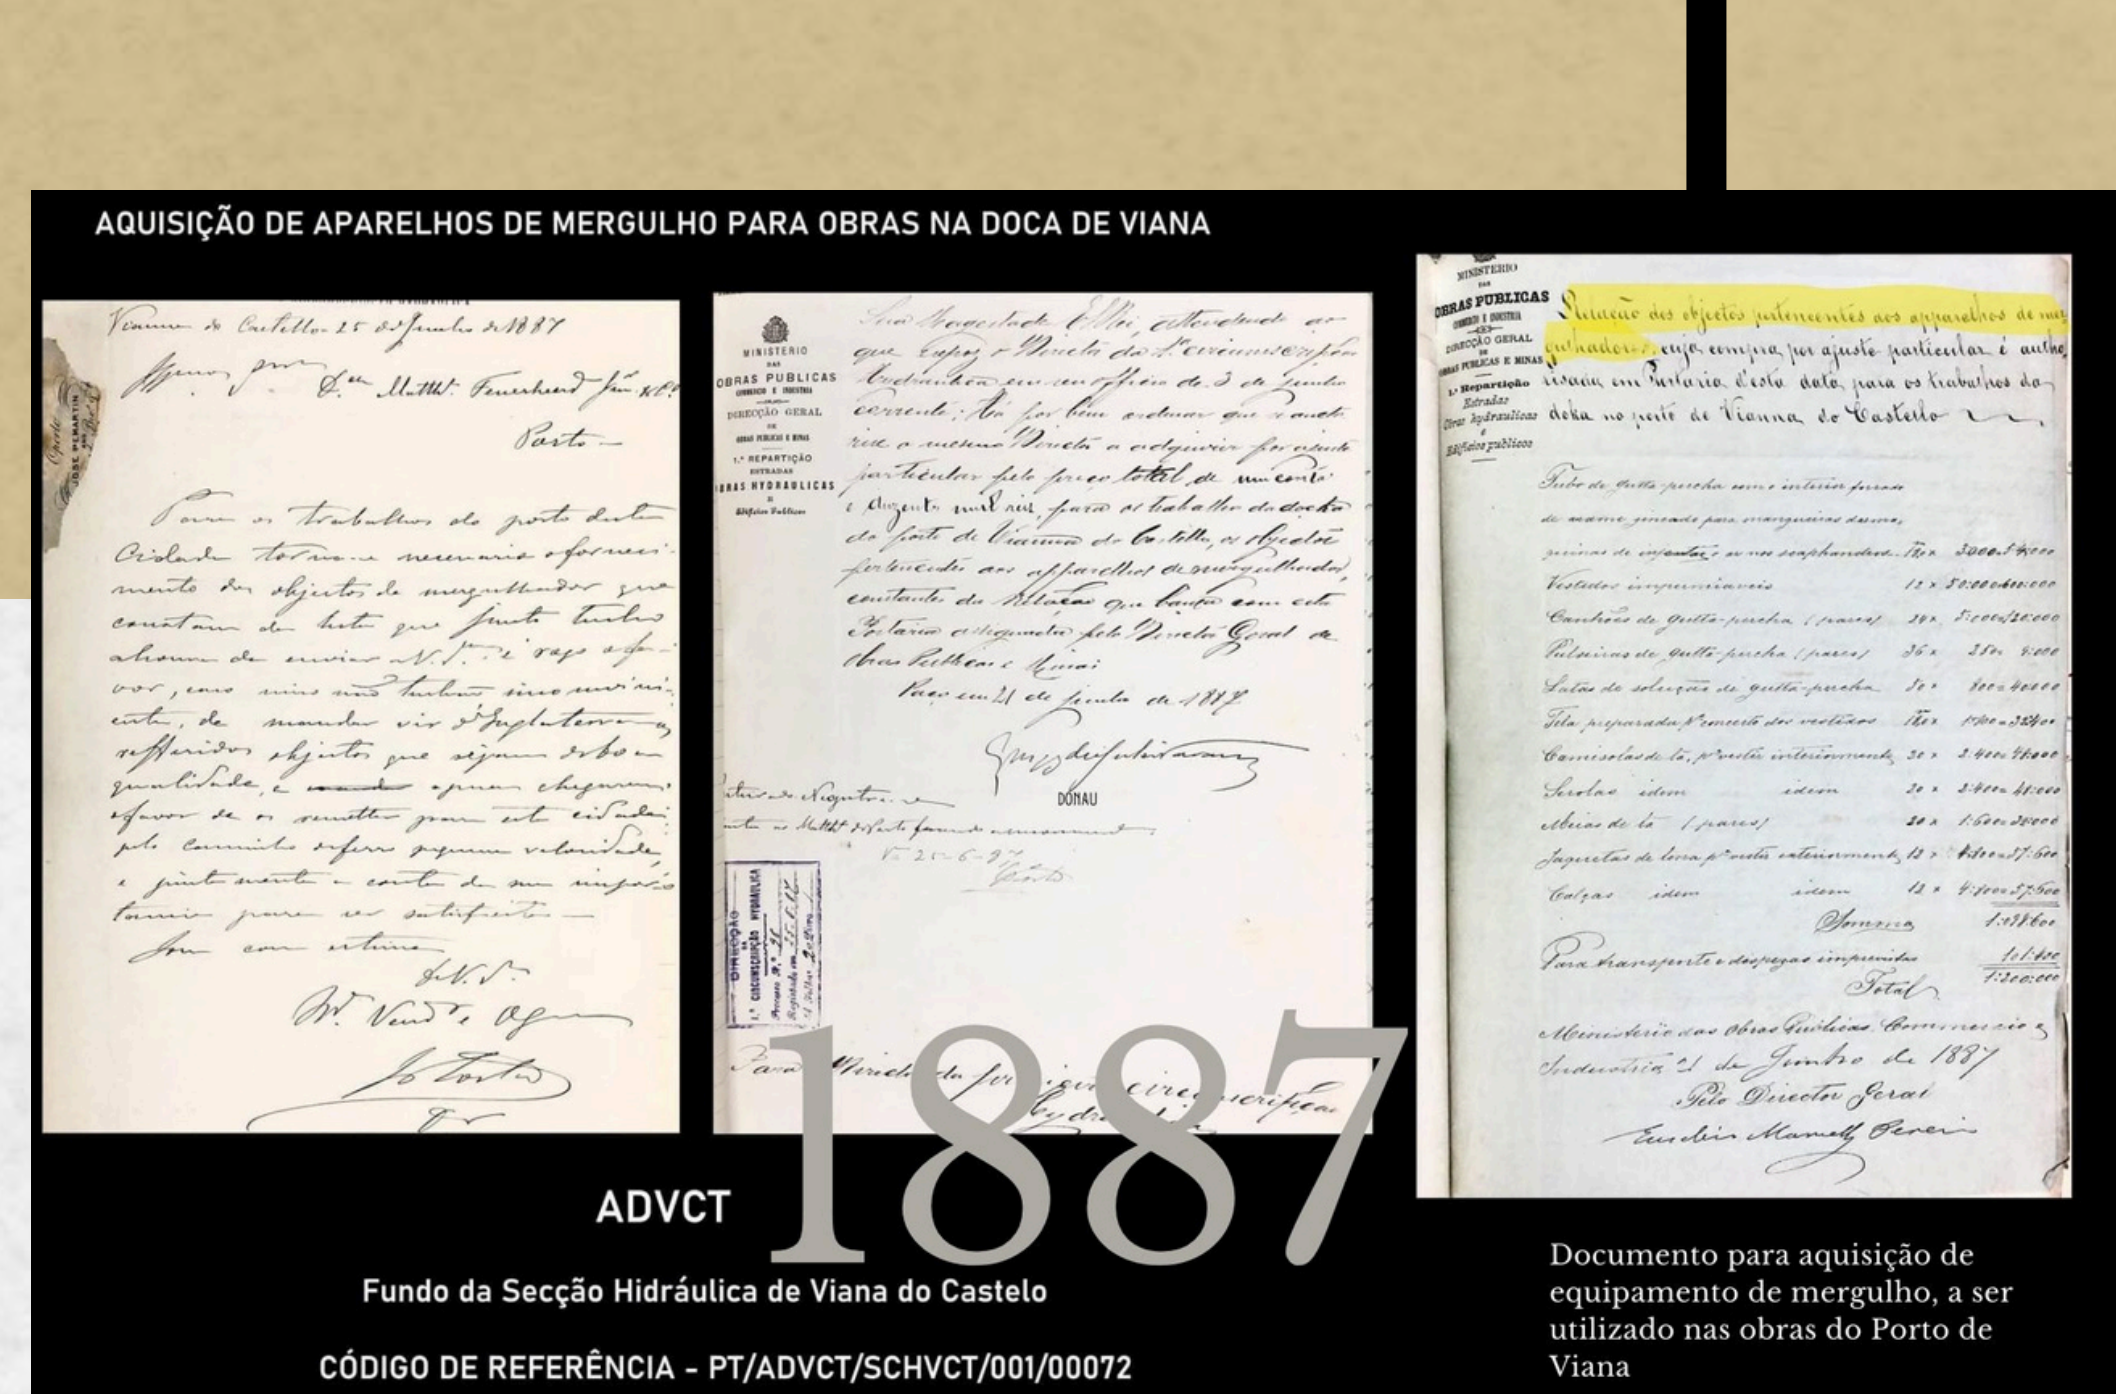 AQUISIÇÃO DE APARELHOS DE MERGULHO PARA OBRAS NA DOCA DE VIANA
Vianna do Castello 25 de Junho de 1887
Matth. Feuerheerd Jun.
Porto
Para os trabalhos do porto desta
Cidade torna-se necessario o forneci-
mento dos objectos de mergulhador que
constam da lista que junto tenho
a honra de enviar a V. S. e rogo o fa-
vor, caso n'isso não tenham inconveni-
ente, de mandar vir d'Inglaterra os
refferidos objectos que sejam de boa
qualidade, e apenas cheguem
o favor de os remetter para esta cidade
pelo caminho de ferro pequena velocidade,
e juntamente a conta da sua impor-
tancia para ser satisfeita
Sou com estima
De V. S.
JOSE PEMARTIN
MINISTERIO
DAS
OBRAS PUBLICAS
COMMERCIO E INDUSTRIA
DIRECÇÃO GERAL
DE
OBRAS PUBLICAS E MINAS
1.ª REPARTIÇÃO
ESTRADAS
OBRAS HYDRAULICAS
E
Edificios Publicos
Sua Magestade El-Rei, attendendo ao
que expoz o Director da 1.ª circumscripção
hydraulica em seu officio de 3 de junho
corrente: Ha por bem ordenar que se aucto-
rise o mesmo Director a adquirir por ajuste
particular pelo preço total de um conto
e duzentos mil reis, para os trabalhos da doca
do porto de Vianna do Castello, os objectos
pertencentes aos apparelhos de mergulhador,
constantes da relação que baixa com esta
Portaria assignada pelo Director Geral de
Obras Publicas e Minas
Paço em 21 de junho de 1887
DONAU
25-6-87
Porto
DIRECÇÃO
DA
1.ª CIRCUMSCRIPÇÃO HYDRAULICA
Processo N.º
Registado em
Para o Director da primeira circumscripção
hydraulica
MINISTERIO
DAS
OBRAS PUBLICAS
COMMERCIO E INDUSTRIA
DIRECÇÃO GERAL
DE
OBRAS PUBLICAS E MINAS
1.ª Repartição
Estradas
Obras hydraulicas
e
Edificios publicos
Relação dos objectos pertencentes aos apparelhos de mer-
gulhador, cuja compra por ajuste particular é autho-
risada em Portaria d'esta data para os trabalhos da
doka no porto de Vianna do Castello
Tubo de gutta-percha com o interior forrado
de arame zincado para mangueiras das ma-
quinas de injectar o ar nos scaphandros 3:000=54:000
Vestidos impermiaveis 12 x 50:000=600:000
Canhões de gutta-percha (pares) 24 x 5:000=120:000
Pulseiras de gutta-percha (pares) 36 x 250= 9:000
Latas de solução de gutta-percha 50 x 800=40:000
Tela preparada p.ª concerto dos vestidos
Camisolas de lã, p.ª vestir interiormente 20 x 2:400=48:000
Serolas idem idem 20 x 2:400=48:000
Meias de lã (pares) 20 x 1:600=32:000
Jaquetas de lona p.ª vestir exteriormente 12 x 4:800=57:600
Calças idem idem 12 x 4:800=57:600
Somma 1:098:600
Para transporte e despezas imprevistas 101:400
Total 1:200:000
Ministerio das Obras Publicas Commercio e
Industria 21 de Junho de 1887
Pelo Director Geral
1887
ADVCT
Fundo da Secção Hidráulica de Viana do Castelo
CÓDIGO DE REFERÊNCIA - PT/ADVCT/SCHVCT/001/00072
Documento para aquisição de
equipamento de mergulho, a ser
utilizado nas obras do Porto de
Viana